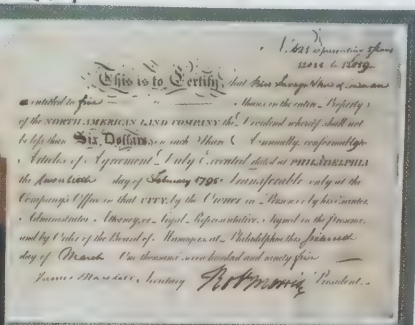 This is to Certify that
is entitled to five Shares in the entire Property
of the NORTH AMERICAN LAND COMPANY the Dividend whereof shall not
be less than Six Dollars on each Share Annually, conformably to
Articles of Agreement duly executed dated at PHILADELPHIA
the Twentieth day of February 1795 transferable only at the
Company's Office in that CITY, by the Owner in Person or by his Executor
Administrator Attorney or legal Representative Signed in the presence
and by Order of the Board of Managers at Philadelphia this
day of March One thousand seven hundred and ninety five
James Marshall Secretary Rob Morris President